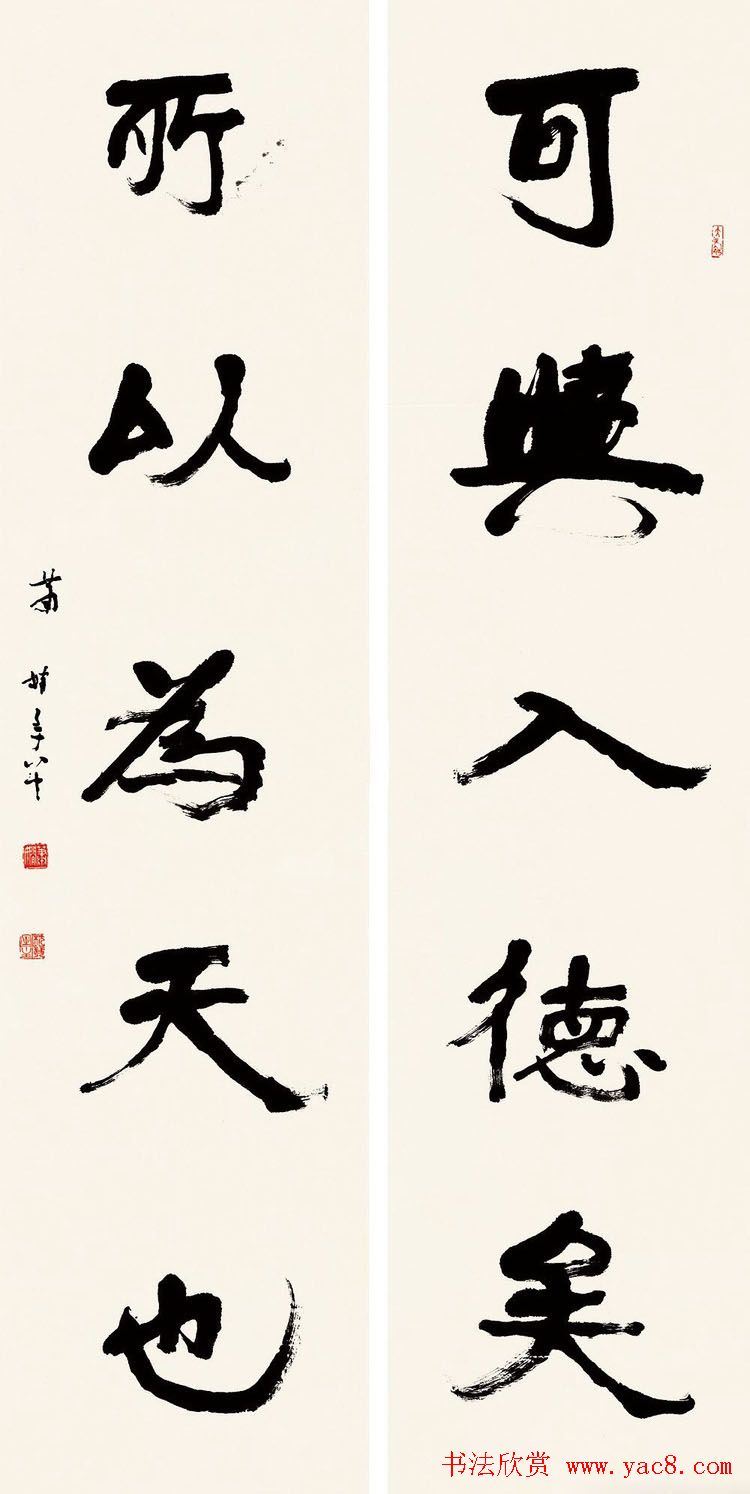 可與入德矣
所以為天也
蕭嫻年八十
书法欣赏 www.yac8.com